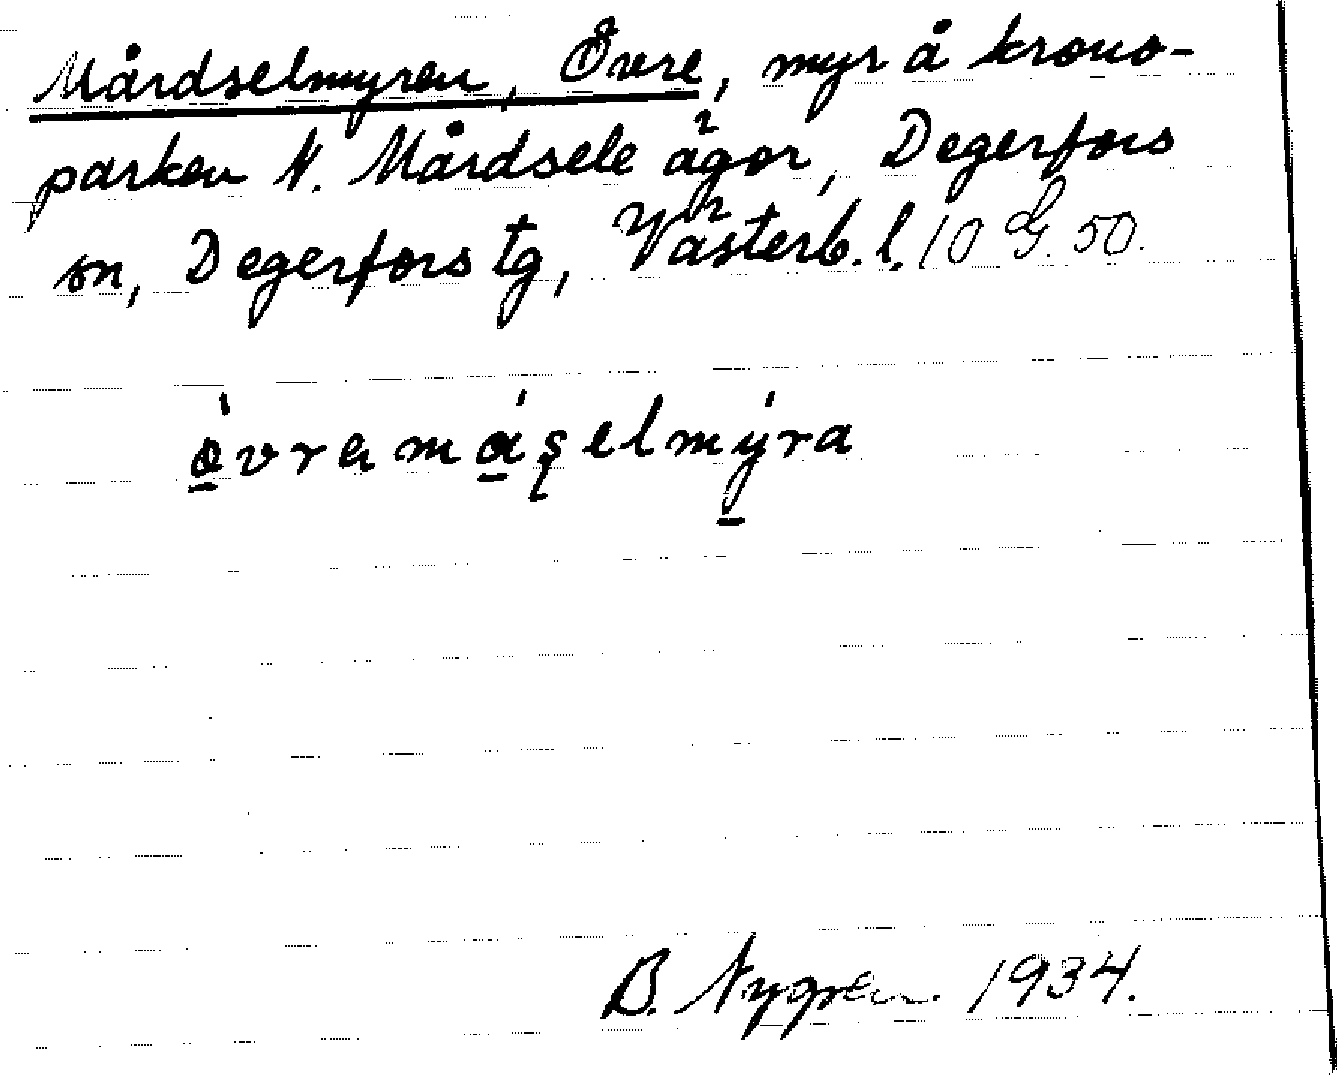 Mårdselmyren, Övre, myr å krono-
parken N. Mårdsele ägor, Degerfors
sn, Degerfors tg, Västerb. l. 10 G. 50.
ö̀vra måselmýra
B. Nygren 1934.